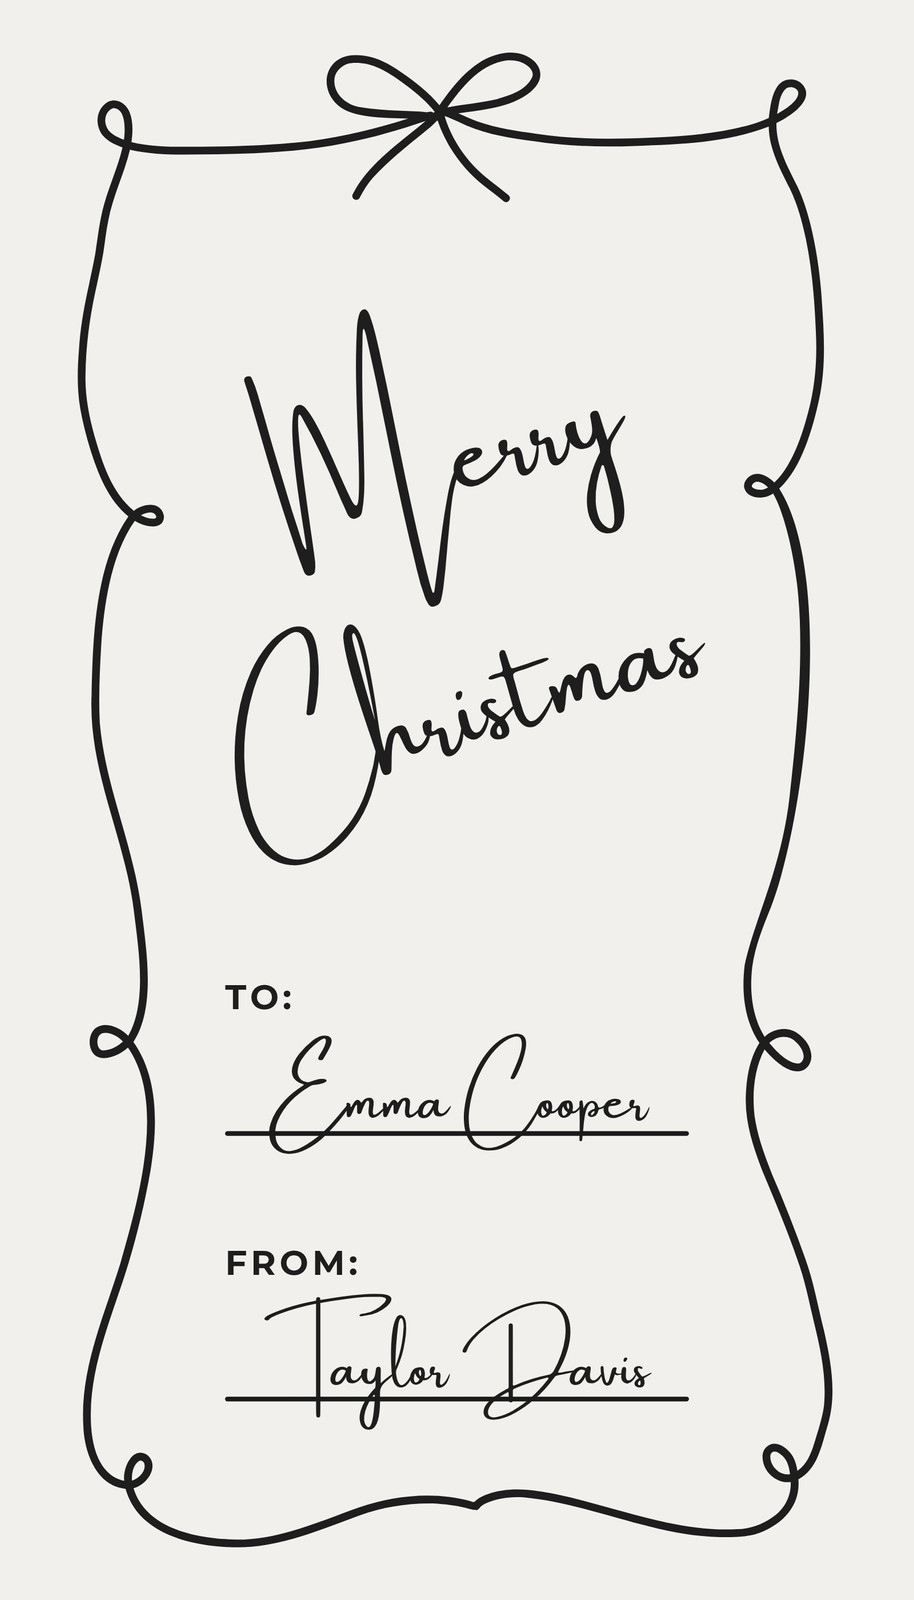 Merry
Christmas
TO:
Emma Cooper
FROM:
Taylor Davis